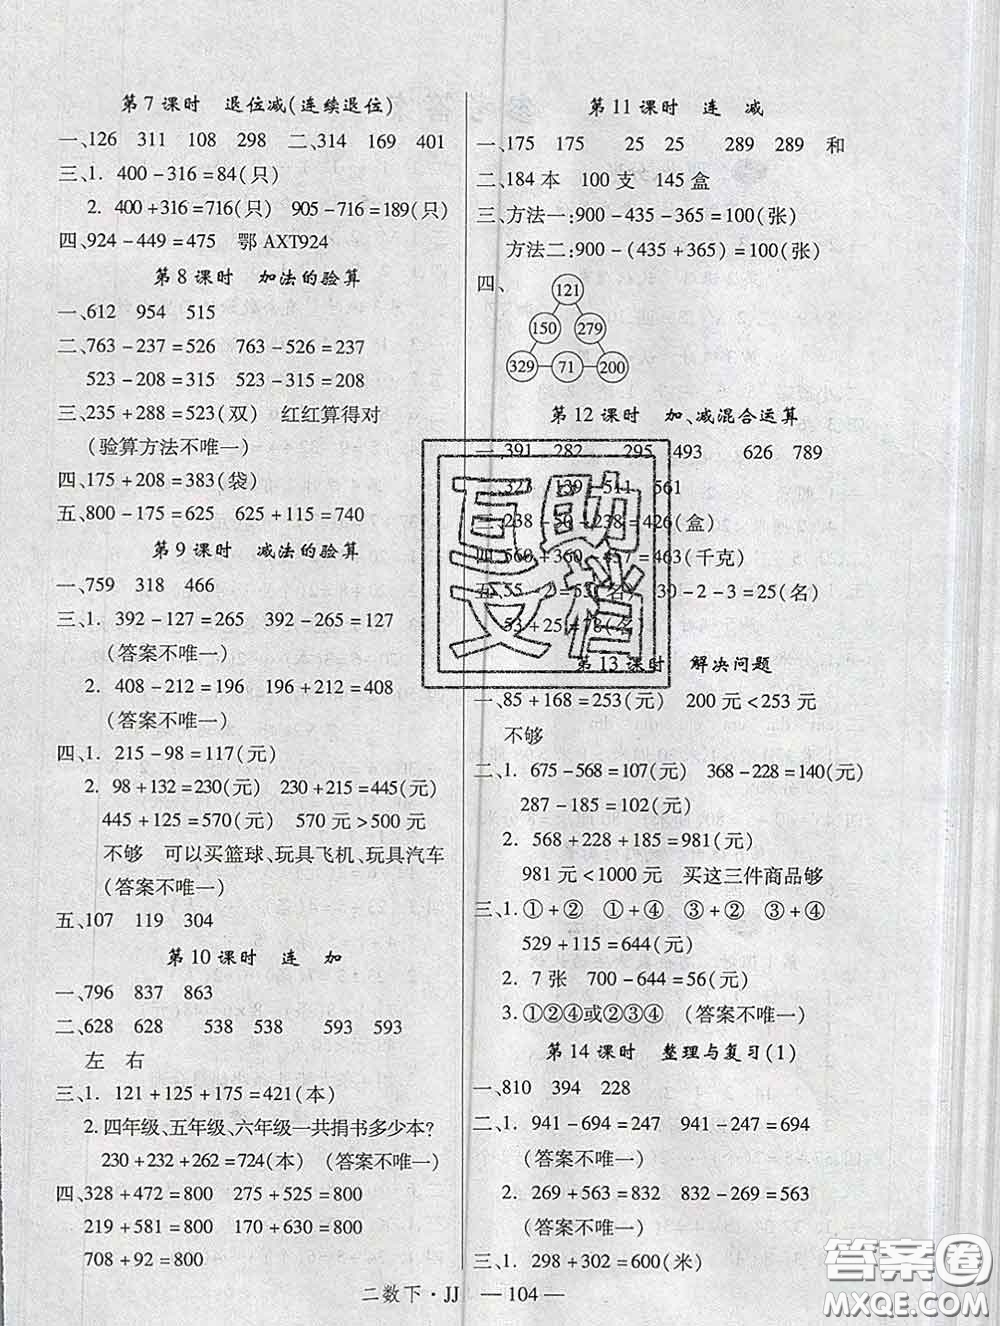 第7课时 退位减(连续退位)
一、126 311 108 298 二、314 169 401
三、1. 400-316=84(只)
2. 400+316=716(只) 905-716=189(只)
四、924-449=475 鄂AXT924
第8课时 加法的验算
一、612 954 515
二、763-237=526 763-526=237
523-208=315 523-315=208
三、235+288=523(双) 红红算得对
(验算方法不唯一)
四、175+208=383(袋)
五、800-175=625 625+115=740
第9课时 减法的验算
一、759 318 466
三、1. 392-127=265 392-265=127
(答案不唯一)
2. 408-212=196 196+212=408
(答案不唯一)
四、1. 215-98=117(元)
2. 98+132=230(元) 230+215=445(元)
445+125=570(元) 570元>500元
不够 可以买篮球、玩具飞机、玩具汽车
(答案不唯一)
五、107 119 304
第10课时 连 加
一、796 837 863
二、628 628 538 538 593 593
左 右
三、1. 121+125+175=421(本)
2. 四年级、五年级、六年级一共捐书多少本?
230+232+262=724(本) (答案不唯一)
四、328+472=800 275+525=800
219+581=800 170+630=800
708+92=800
第11课时 连 减
一、175 175 25 25 289 289 和
二、184本 100支 145盒
三、方法一:900-435-365=100(张)
方法二:900-(435+365)=100(张)
四、
121
150 279
329 71 200
第12课时 加、减混合运算
一、391 282 295 493 626 789
139 511 561
238=426(盒)
560+360-457=463(千克)
30-2-3=25(名)
53+25=78(名)
互助文档
第13课时 解决问题
一、85+168=253(元) 200元<253元
不够
二、1. 675-568=107(元) 368-228=140(元)
287-185=102(元)
2. 568+228+185=981(元)
981元<1000元 买这三件商品够
三、1. ①+② ①+④ ③+② ③+④
529+115=644(元)
2. 7张 700-644=56(元)
3. ①②④或②③④ (答案不唯一)
第14课时 整理与复习(1)
一、810 394 228
二、1. 941-694=247 941-247=694
(答案不唯一)
2. 269+563=832 832-269=563
(答案不唯一)
三、1. 298+302=600(米)
二数下·JJ — 104 —
答案圈
MXQE.COM